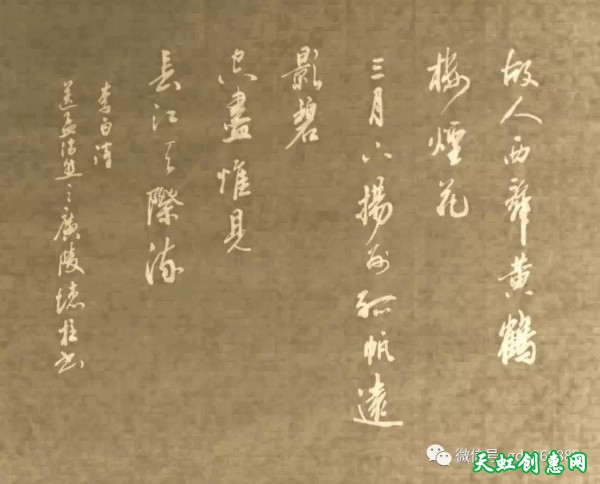 故人西辭黄鶴
樓煙花
三月下揚州孤帆遠
影碧
空盡惟見
長江天際流
李白詩
送孟浩然之廣陵
微信号
天虹创惠网